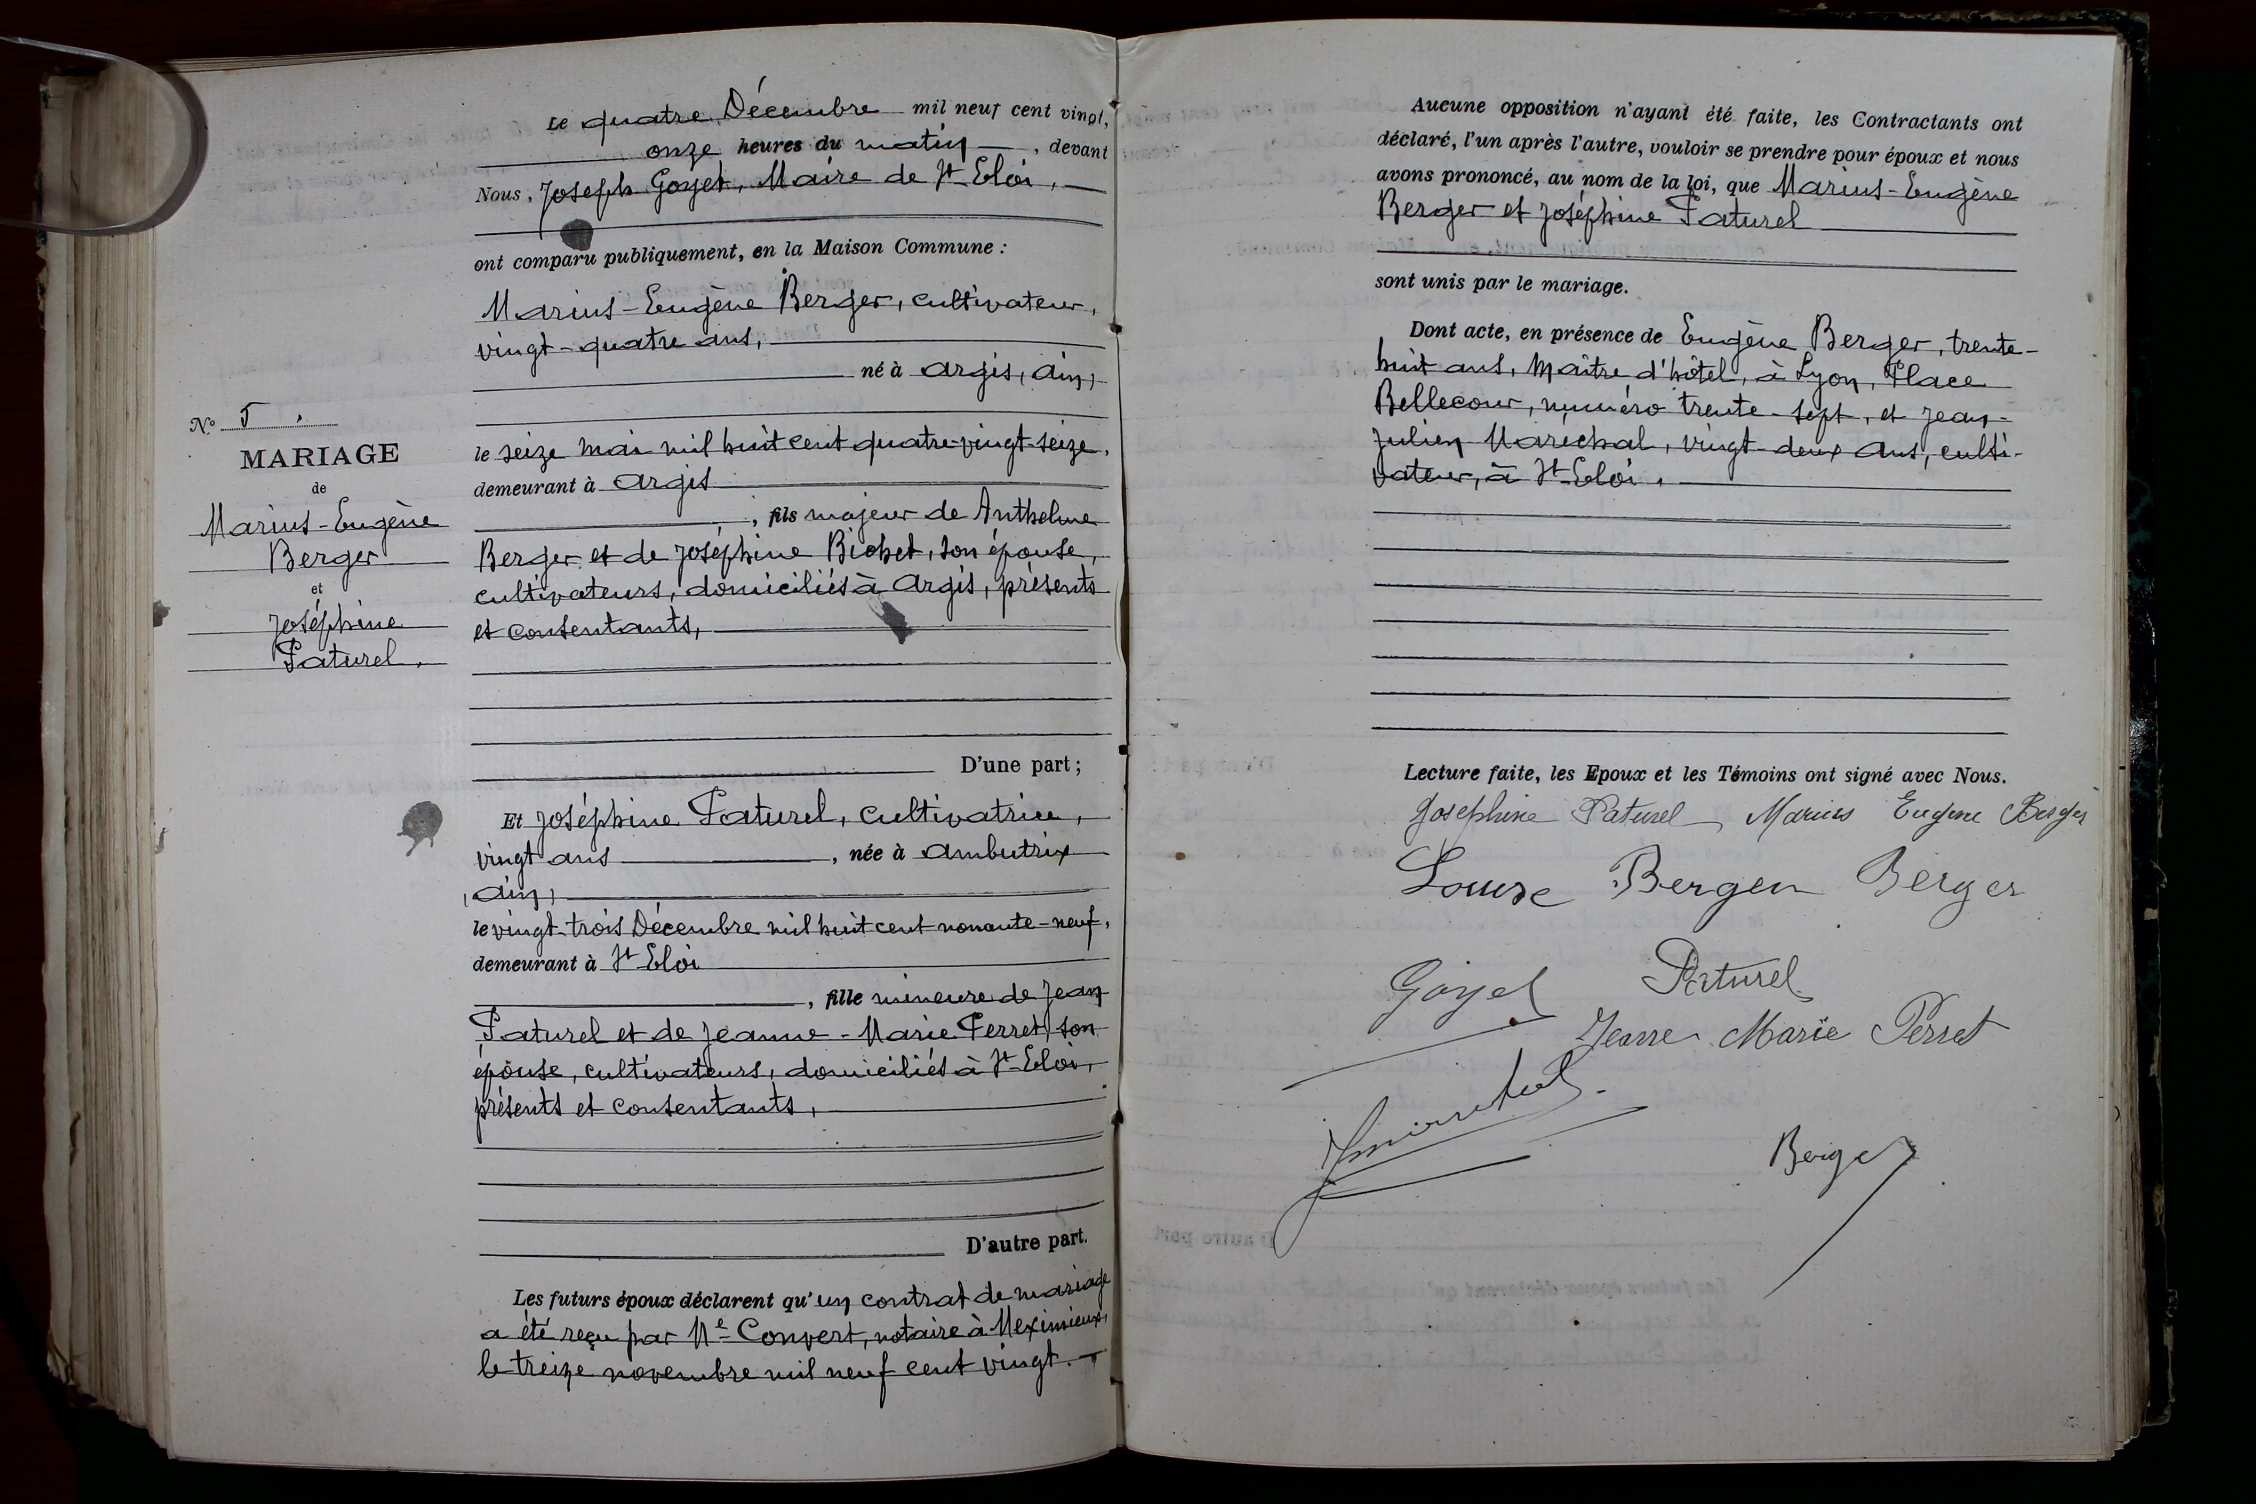 Le quatre Décembre mil neuf cent vingt,
onze heures du matin, devant
Nous, Joseph Goyet, Maire de St Eloi,
ont comparu publiquement, en la Maison Commune :
Marius-Eugène Berger, cultivateur,
vingt-quatre ans,
né à Argis, Ain,
le seize mai mil huit cent quatre-vingt-seize,
demeurant à Argis
, fils majeur de Anthelme
Berger et de Joséphine Bichet, son épouse,
cultivateurs, domiciliés à Argis, présents
et consentants,
D'une part ;
N° 5.
MARIAGE
de
Marius-Eugène
Berger
et
Joséphine
Paturel.
Et Joséphine Paturel, cultivatrice,
vingt ans, née à Ambutrix
(Ain)
le vingt-trois Décembre mil huit cent nonante-neuf,
demeurant à St Eloi
, fille mineure de Jean
Paturel et de Jeanne-Marie Perret, son
épouse, cultivateurs, domiciliés à St Eloi,
présents et consentants,
D'autre part.
Les futurs époux déclarent qu'un contrat de mariage
a été reçu par Me Convert, notaire à Meximieux,
le treize novembre mil neuf cent vingt.
Aucune opposition n'ayant été faite, les Contractants ont
déclaré, l'un après l'autre, vouloir se prendre pour époux et nous
avons prononcé, au nom de la loi, que Marius-Eugène
Berger et Joséphine Paturel
sont unis par le mariage.
Dont acte, en présence de Eugène Berger, trente-
huit ans, Maître d'hôtel, à Lyon, Place
Bellecour, numéro trente-sept, et Jean-
Julien Marechal, vingt-deux ans, culti-
vateur, à St Eloi.
Lecture faite, les Epoux et les Témoins ont signé avec Nous.
Josephine Paturel Marius Eugene Berger
Louise Berger Berger
Goyet Paturel
Jeanne Marie Perret
Berger